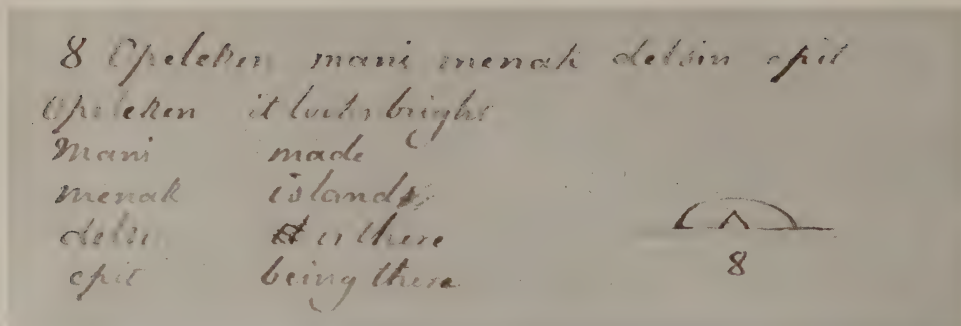 8 Opeleken mani menak delsin epit
Opeleken it looks bright
Mani made
menak islands,
delsin is there
epit being there
8